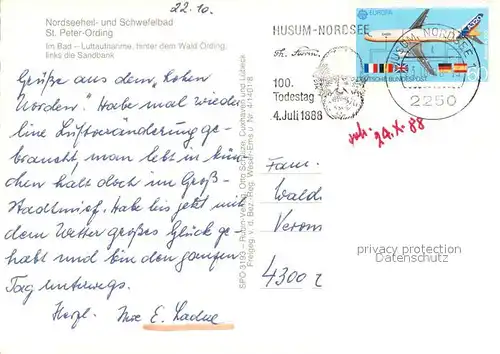 22.10.
Nordseeheil- und Schwefelbad
St. Peter-Ording
Im Bad – Luftaufnahme, hinter dem Wald Ording,
links die Sandbank
Grüße aus dem „hohen
Norden". Habe mal wieder
eine Luftveränderung ge-
braucht, man lebt in
chen halt doch im Groß-
stadtmief. Habe bis jetzt mit
dem Wetter großes Glück ge-
habt und bin den ganzen
Tag unterwegs.
Herzl. E.
SPO 3193 – Verlag Otto Schulze, Cuxhaven und Lübeck
Freigeg. v. d. Bez. Reg. Weser-Ems u. Nr.
HUSUM-NORDSEE
Th. Storm
100.
Todestag
4. Juli 1888
EUROPA
DEUTSCHE BUNDESPOST
60
HUSUM, NORDSEE
2250
24.X.88
Fam.
Wald
4300
privacy protection
Datenschutz